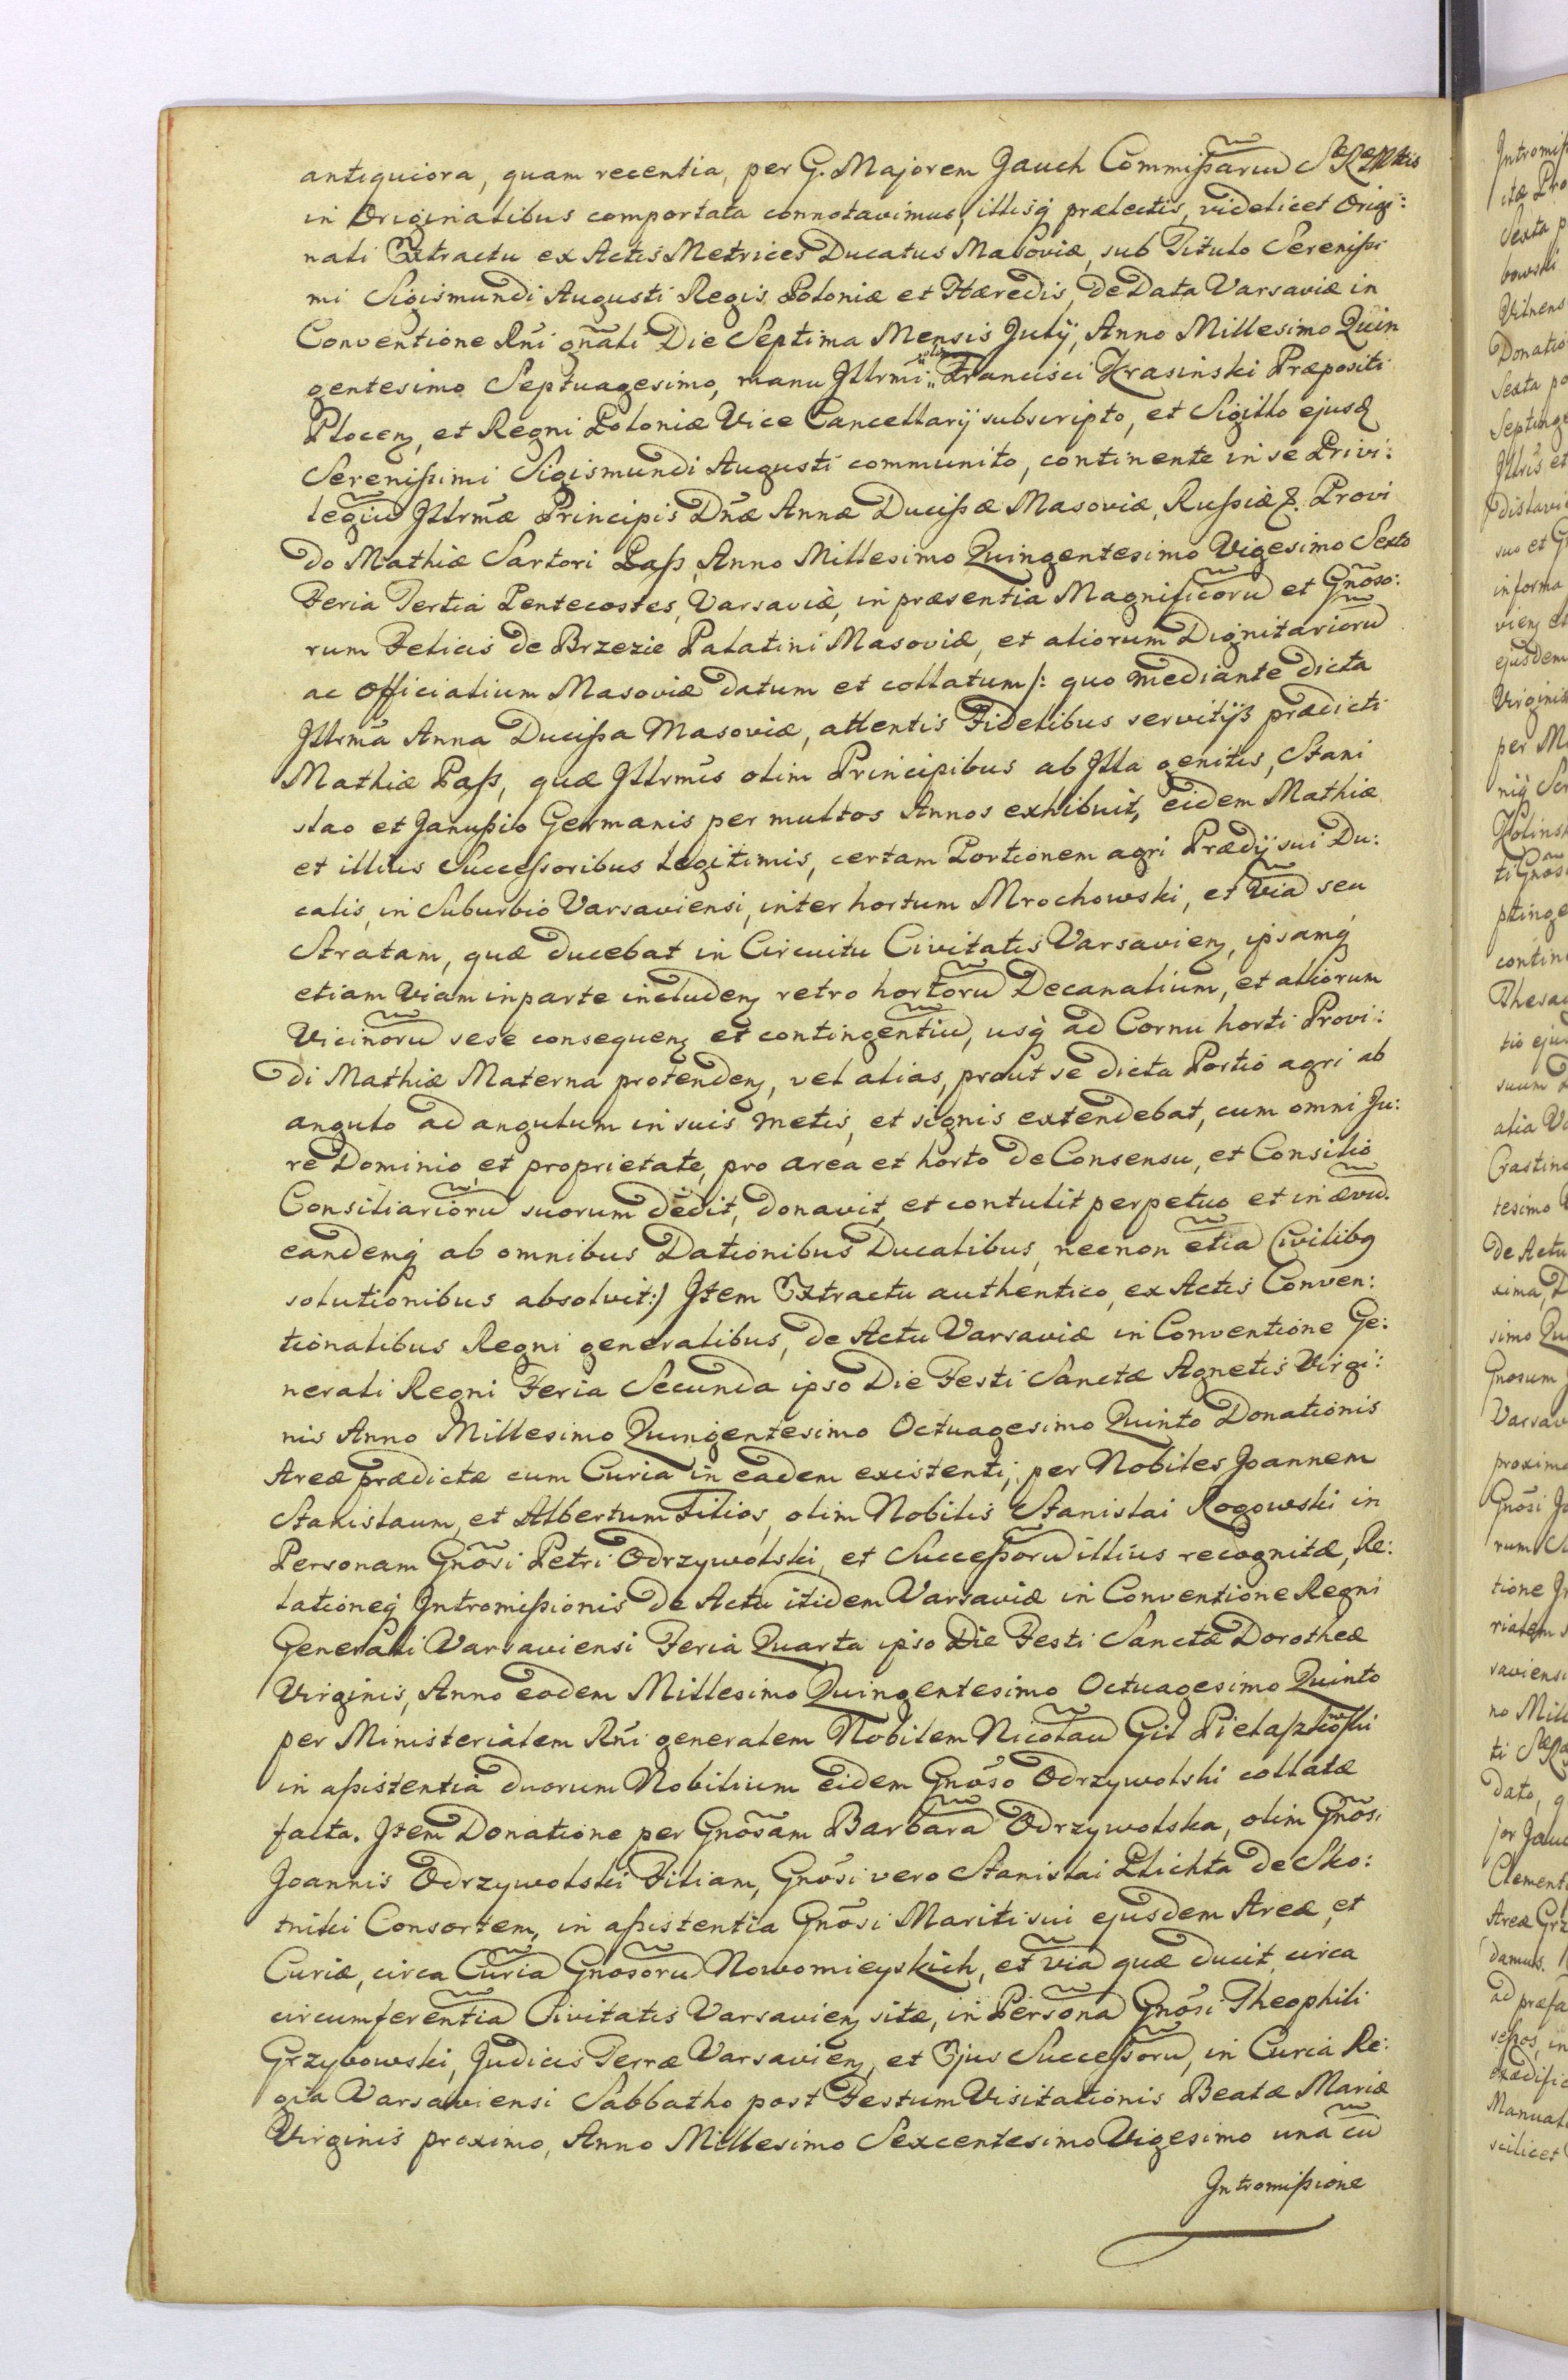 antiquiora, quam recentia, per G. Majorem Jauch Commißariũ S. R. Mttis
in Originalibus comportata connotavimus, illisq́ prælectis, videlicet Origi:
nali Extractu ex Actis Metrices Ducatus Masoviæ, sub Titulo Sereniẞi
mi Sigismundi Augusti Regis Poloniæ et Hæredis, de Data Varsaviæ in
Conventione Rñi gñali Die Septima Mensis Julij, Anno Millesimo Quin
gentesimo Septuagesimo, manu Jllrmi olim Francisci Krasinski Præpositi
Plocenȝ, et Regni Poloniæ Vice Cancellarij subscripto, et Sigillo ejusđ
Sereniẞimi Sigismundi Augusti communito, continente in se Privi:
legiũ Jllrmæ Principis Dñæ Annæ Ducißæ Masoviæ, Rußiæ &. Provi
do Mathiæ Sartori Paß, Anno Millesimo Quingentesimo Vigesimo Sexto
Feria Tertia Pentecostes, Varsaviæ, in præsentia Magnificorũ et Gñoso:
rum Felicis de Brzezie Palatini Masoviæ, et aliorum Dignitariorũ
ac Officialium Masoviæ datum et collatum /: quo mediante dicta
Jllrma Anna Ducißa Masoviæ, attentis Fidelibus servitijs prædicti
Mathiæ Paß, quæ Jllrmis olim Principibus ab Jlla genitis, Stani
slao et Janußio Germanis per multos Annos exhibuit, eidem Mathiæ
et illius Succeßoribus legitimis, certam Portionem agri Prædij sui Du:
calis, in Suburbio Varsaviensi, inter hortum Mrochowski, et Viã seu
Stratam, quæ ducebat in Circuitu Civitatis Varsavienȝ, ipsamq́
etiam Viam in parte includenȝ retro hortorũ Decanalium, et aliorum
Vicinorũ sese consequenȝ et contingentiũ, usq́ ad Cornu horti Provi:
di Mathiæ Materna protendenȝ, vel alias, prout se dicta Portio agri ab
angulo ad angulum in suis metis, et signis extendebat, cum omni Ju:
re Dominio, et proprietate, pro area et horto de Consensu, et Consilio
Consiliariorũ suorum dedit, donavit, et contulit perpetuo et in ævũ.
eandemq́ ab omnibus Dationibus Ducalibus, necnon etiã Civilibꝯ
solutionibus absolvit:/ Jtem Extractu authentico, ex Actis Conven:
tionalibus Regni generalibus, de Actu Varsaviæ in Conventione Ge:
nerali Regni Feria Secunda ipso Die Festi Sanctæ Agnetis Virgi:
nis Anno Millesimo Quingentesimo Octuagesimo Quinto Donationis
Areæ prædictæ cum Curia in eadem existenti, per Nobiles Joannem
Stanislaum, et Albertum Filios, olim Nobilis Stanislai Rogowski in
Personam Gñosi Petri Odrzywolski, et Succeßorũ illius recognitæ, Re:
lationeq́ Intromißionis de Actu itidem Varsaviæ in Conventione Regni
Generali Varsaviensi Feria Quarta ipso Die Festi Sanctæ Dorotheæ
Virginis, Anno eodem Millesimo Quingentesimo Octuagesimo Quinto
per Ministerialem Rñi generalem Nobilem Nicolaũ Gil
in aßistentia duorum Nobilium eidem Gñoso Odrzywolski collatæ
facta. Jtem Donatione per Gñosam Barbarã Odrzywolska, olim Gñosi
Joannis Odrzywolski Filiam, Gñosi vero Stanislai Plichta de Sko:
tniki Consortem, in aßistentia Gñosi Mariti sui ejusdem Areæ, et
Curiæ, circa Curiã Gñosorũ Nowomieyskich, et viã quæ ducit, circa
circumferentiã Civitatis Varsavienȝ sitæ, in Personã Gñosi Theophili
Grzybowski, Judicis Terræ Varsavienȝ, et Ejus Succeßorũ, in Curia Re:
gia Varsaviensi Sabbatho post Festum Visitationis Beatæ Mariæ
Virginis proximo, Anno Millesimo Sexcentesimo Vigesimo una cũ
Intromißione